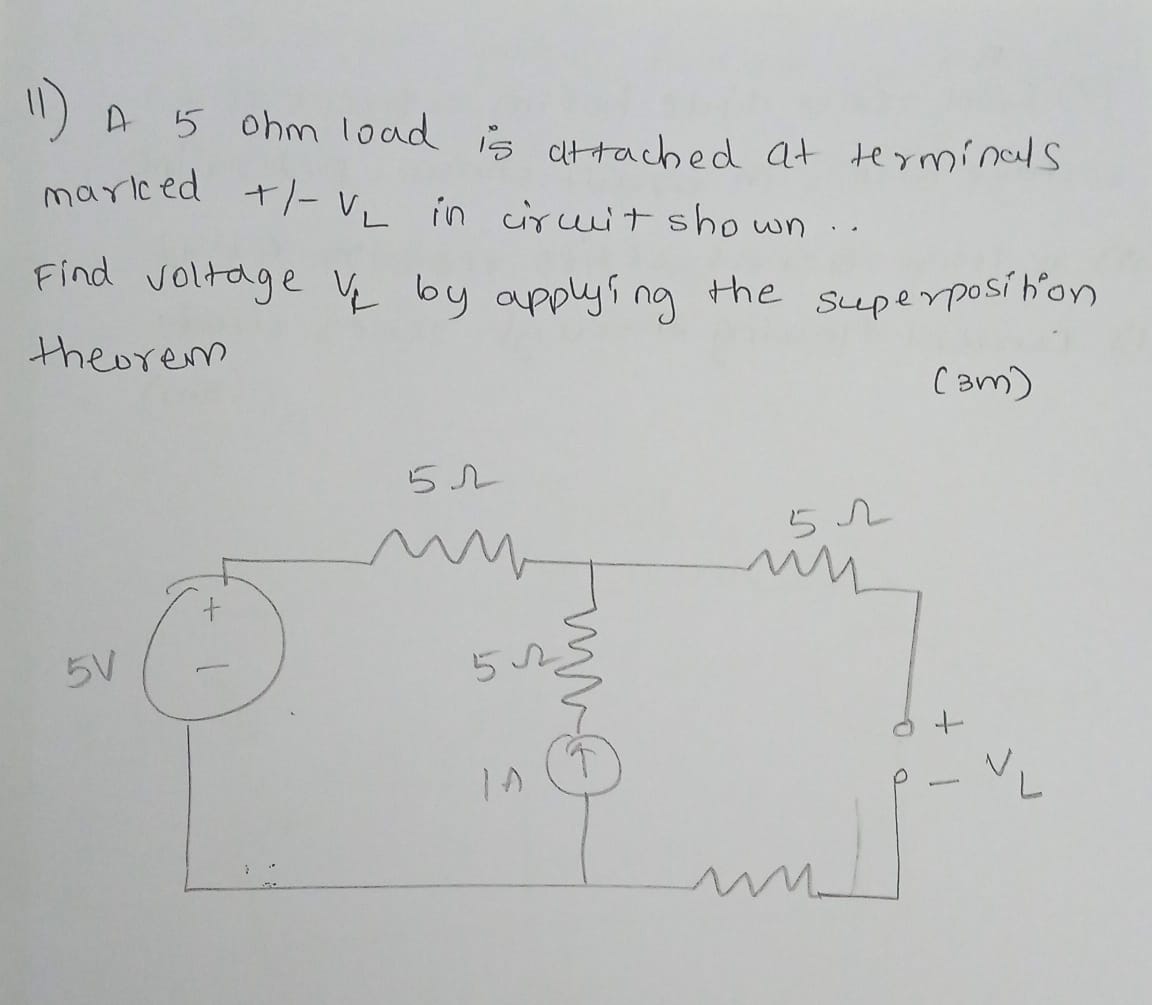 11) A 5 ohm load is attached at terminals
marked +/- VL in circuit shown ..
Find voltage VL by applying the superposition
theorem
(3m)
5Ω
5Ω
+
5V
-
5Ω
+
1A
- VL